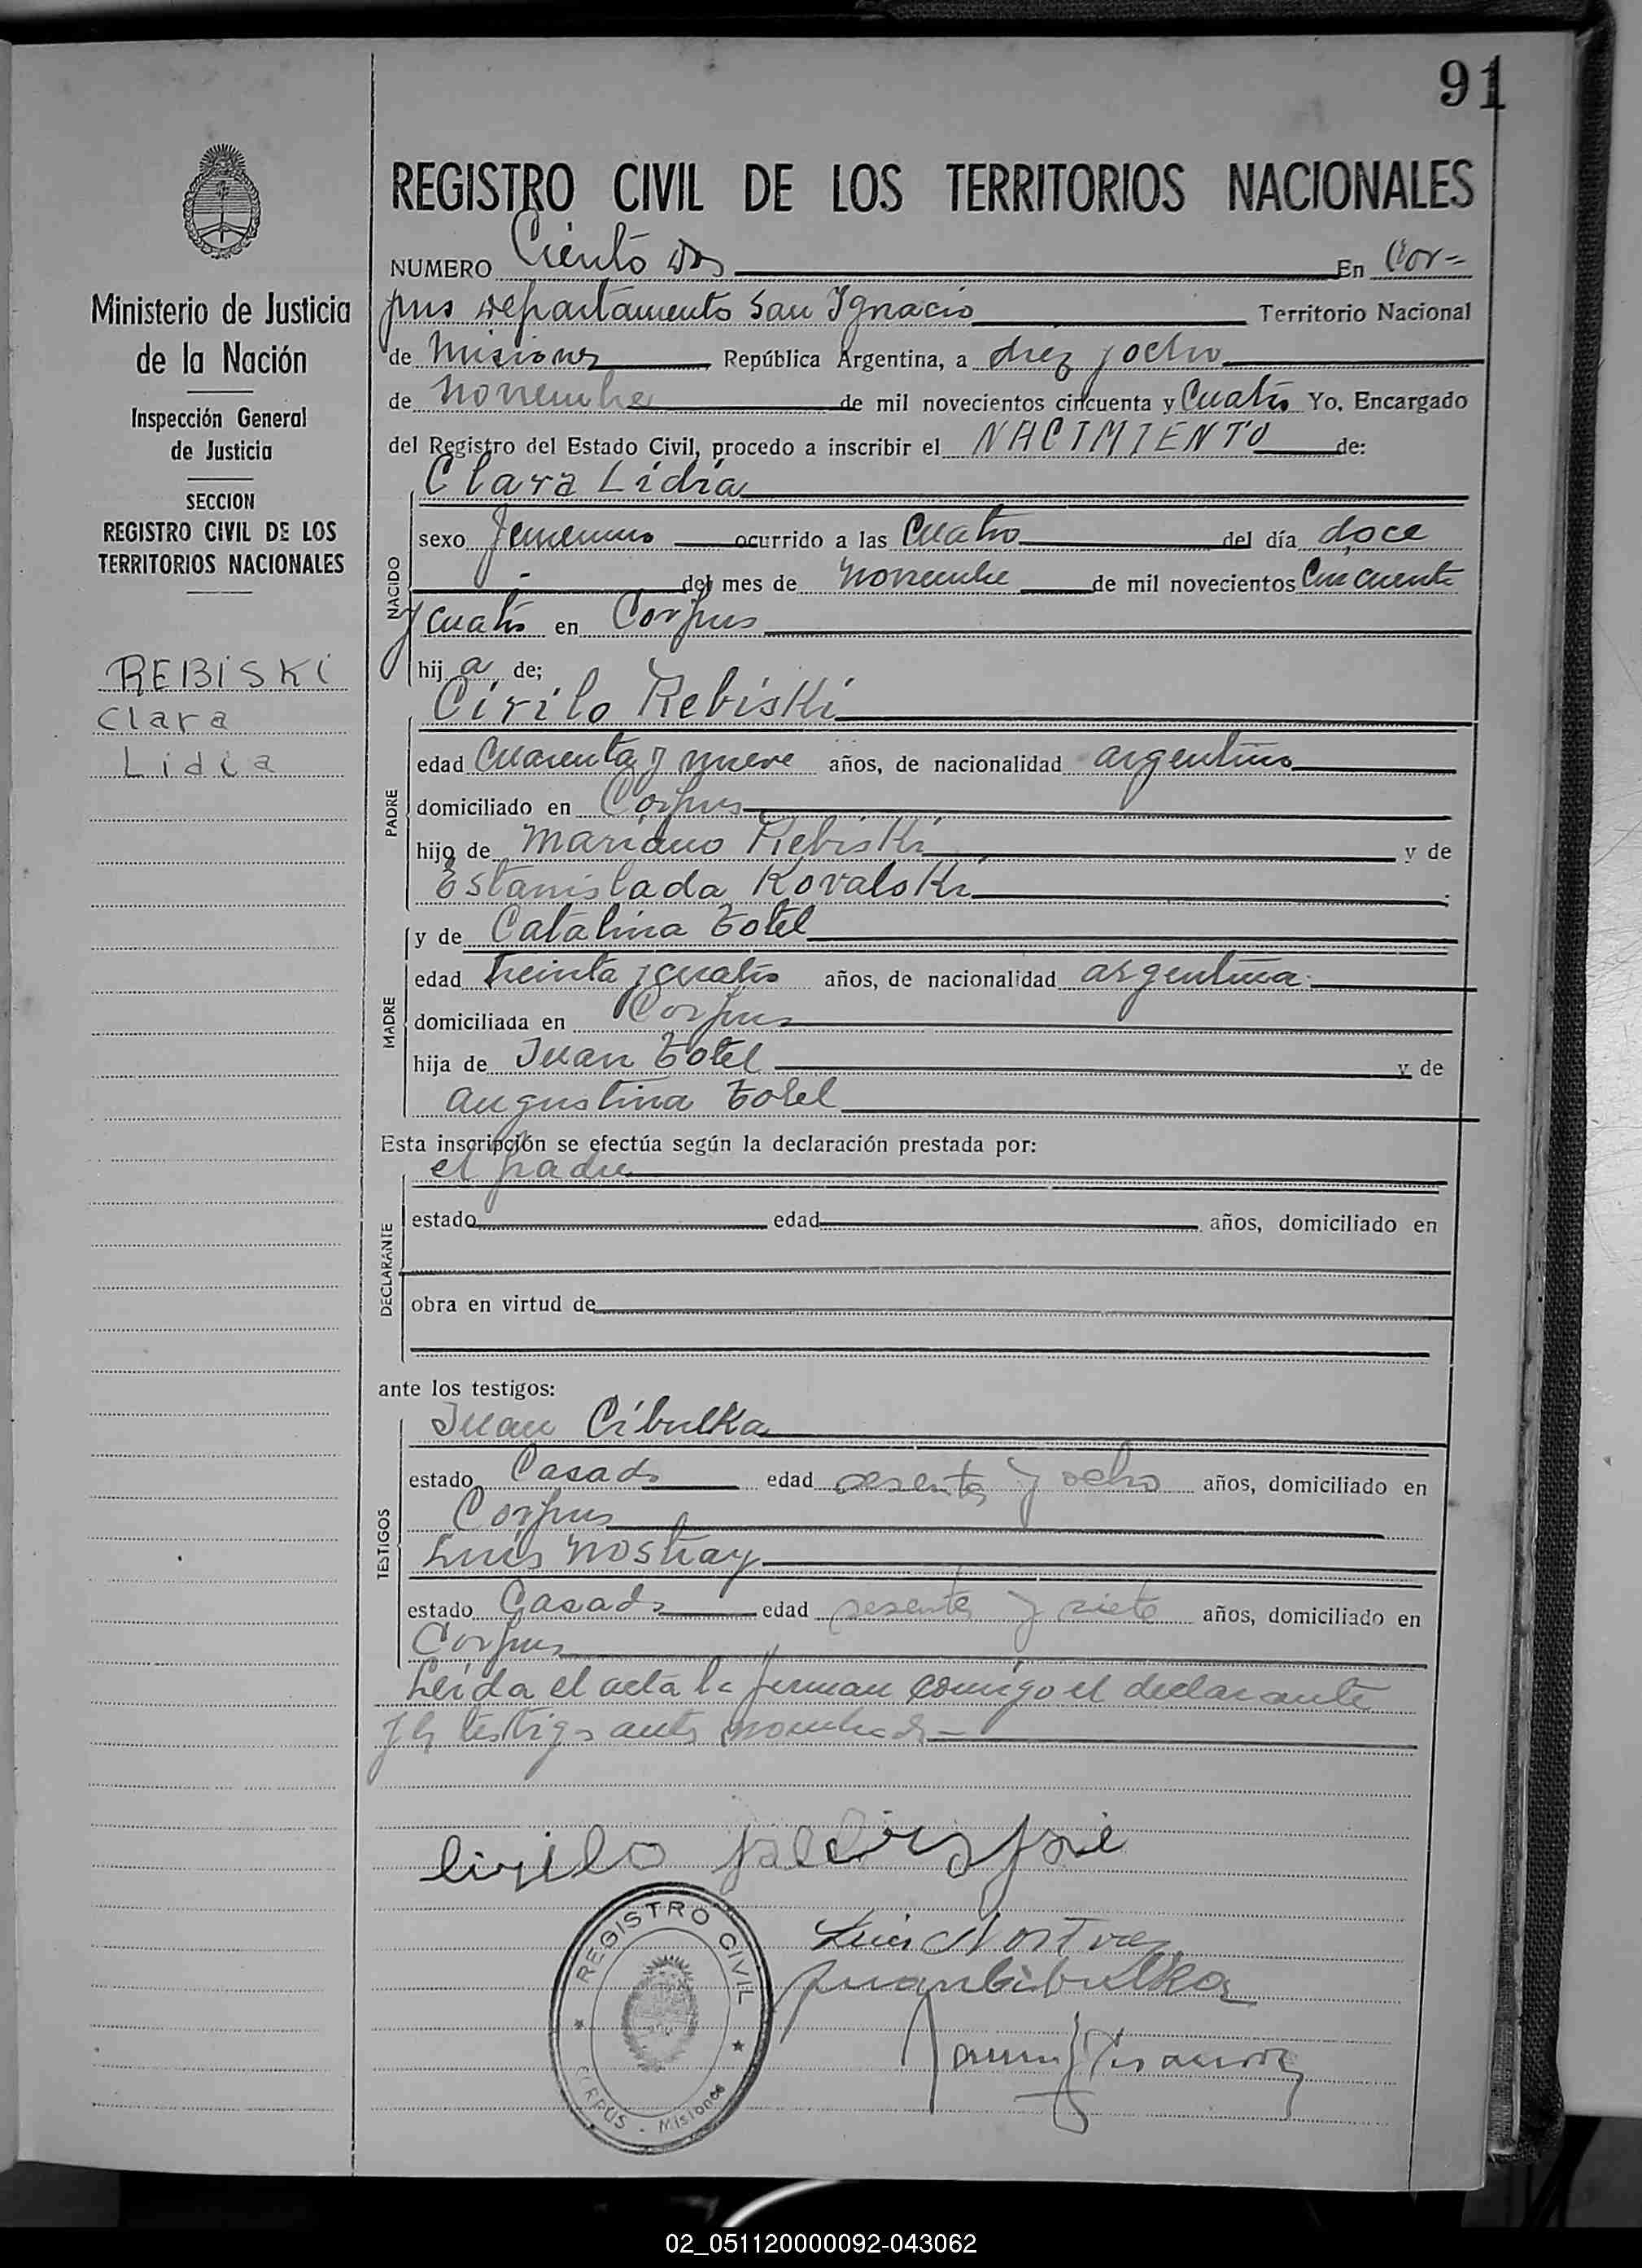 91
REGISTRO CIVIL DE LOS TERRITORIOS NACIONALES
NUMERO Ciento dos En Cor=
pus departamento San Ignacio Territorio Nacional
de Misiones República Argentina, a diez y ocho
de noviembre de mil novecientos cincuenta y Cuatro Yo, Encargado
del Registro del Estado Civil, procedo a inscribir el NACIMIENTO de:
Ministerio de Justicia
de la Nación
Inspección General
de Justicia
SECCION
REGISTRO CIVIL DE LOS
TERRITORIOS NACIONALES
REBISKI
Clara
Lidia
NACIDO
Clara Lidia
sexo femenino ocurrido a las Cuatro del día doce
del mes de noviembre de mil novecientos Cincuenta
y cuatro en Corpus
hij a de;
PADRE
Cirilo Rebiski
edad Cuarenta y nueve años, de nacionalidad argentino
domiciliado en Corpus
hijo de Mariano Rebiski y de
Estanislada Kovalski
MADRE
y de Catalina Totel
edad treinta y cuatro años, de nacionalidad argentina
domiciliada en Corpus
hija de Juan Totel y de
Augustina Totel
Esta inscripción se efectúa según la declaración prestada por:
DECLARANTE
el padre
estado edad años, domiciliado en
obra en virtud de
ante los testigos:
TESTIGOS
Juan Cibulka
estado Casado edad sesenta y ocho años, domiciliado en
Corpus
Luis Nostray
estado Casado edad sesenta y siete años, domiciliado en
Corpus
Leida el acta la firman comigo el declarante
y los testigos antes nombrados=
Cirilo
Luis
Juan Cibulka
REGISTRO CIVIL
CORPUS - Misiones
02_051120000092-043062